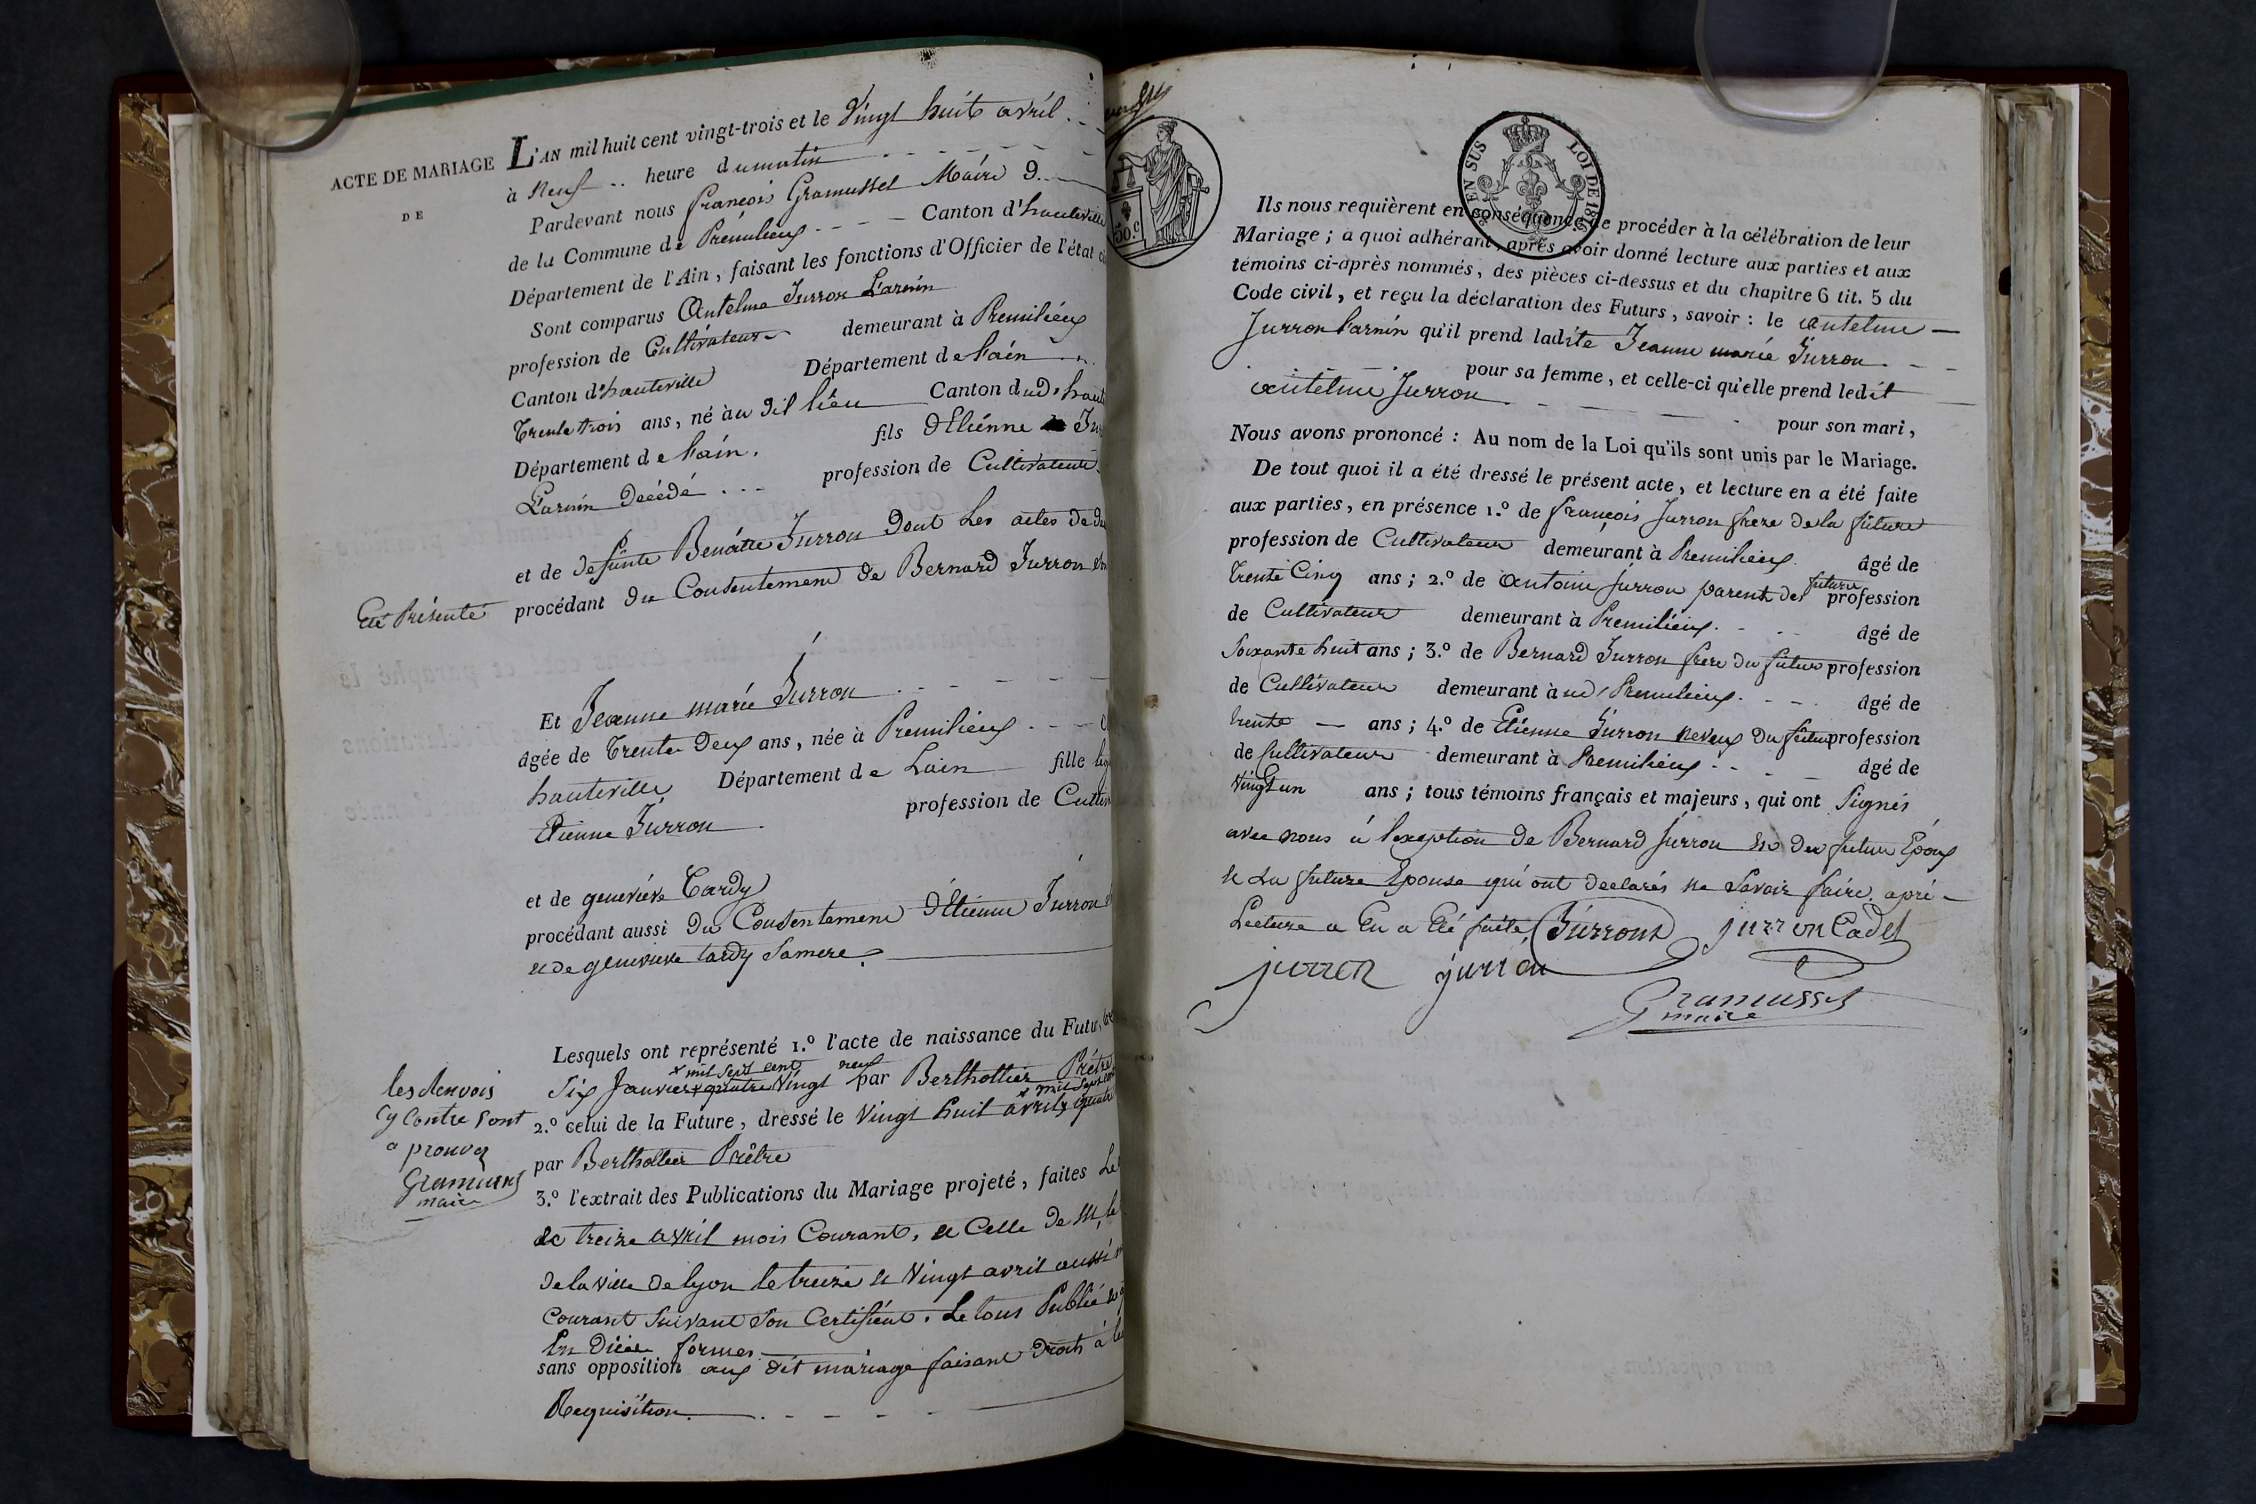 ACTE DE MARIAGE
DE
L'AN mil huit cent vingt-trois et le Vingt huit avril
à Neuf heure du matin
Pardevant nous françois Gramusset Maire D.
de la Commune de Prémilieu Canton d'hauteville
Département de l'Ain, faisant les fonctions d'Officier de l'état
Sont comparus Antelme Jurron Larnin
profession de Cultivateur demeurant à Premilieu
Canton d'hauteville Département de L'ain
trente trois ans, né à au dit lieu Canton dud.
Département de L'ain. fils d'Etienne
Larnin Décédé profession de Cultivateur
et de defunte Benoitte Jurron Dont Les actes de
Eté Présenté
procédant du Consentement de Bernard Jurron
Et Jeanne marie Jurron
âgée de Trente Deux ans, née à Premilieu
hauteville Département de Lain fille
Etienne Jurron profession de
et de genevieve Tardy
procédant aussi du Consentement d'Etienne Jurron
et de genevieve tardy Samere
Lesquels ont représenté 1.º l'acte de naissance du Futur,
x mil Sept cent neuf
Six Janvier x quatre Vingt par Berthollier Prêtre
x mil Sept cent
2.º celui de la Future, dressé le Vingt huit avril x quatre
par Berthollier Prêtre
3.º l'extrait des Publications du Mariage projeté, faites Le
les Renvois
Cy Contre Sont
approuvé
Gramusset
maire
treize avril mois Courant, et Celle de M, le
de la Ville de lyon le treize et Vingt avril aussi
Courant Suivant Son Certificat. Le tous Publié
En Duee formes
sans opposition aux dit mariage faisant Droit à
Requisition
50.c
EN SUS
LOI DE 1816
Ils nous requièrent en conséquence de procéder à la célébration de leur
Mariage; à quoi adhérant, après avoir donné lecture aux parties et aux
témoins ci-après nommés, des pièces ci-dessus et du chapitre 6 tit. 5 du
Code civil, et reçu la déclaration des Futurs, savoir: le antelme
Jurron Larnin qu'il prend ladite Jeanne marie Jurron
pour sa femme, et celle-ci qu'elle prend ledit
antelme Jurron
pour son mari,
Nous avons prononcé: Au nom de la Loi qu'ils sont unis par le Mariage.
De tout quoi il a été dressé le présent acte, et lecture en a été faite
aux parties, en présence 1.º de françois Jurron frere de la future
profession de Cultivateur demeurant à Premilieu âgé de
trente Cinq ans; 2.º de Antoine Jurron parent des future profession
de Cultivateur demeurant à Premilieu âgé de
Soixante huit ans; 3.º de Bernard Jurron frere du futur profession
de Cultivateur demeurant à ud. Premilieu âgé de
trente ans; 4.º de Etienne Jurron neveux du futur profession
de Cultivateur demeurant à Premilieu âgé de
Vingt un ans; tous témoins français et majeurs, qui ont Signés
avec nous à l'exeption de Bernard Jurron et du futur Epoux
et La future Epouse qui ont declarés ne Savoir faire, apré
Lecture a En a Eté faite,
Jurron
jurron Cadet
jurron
jurron
Gramusset
maire